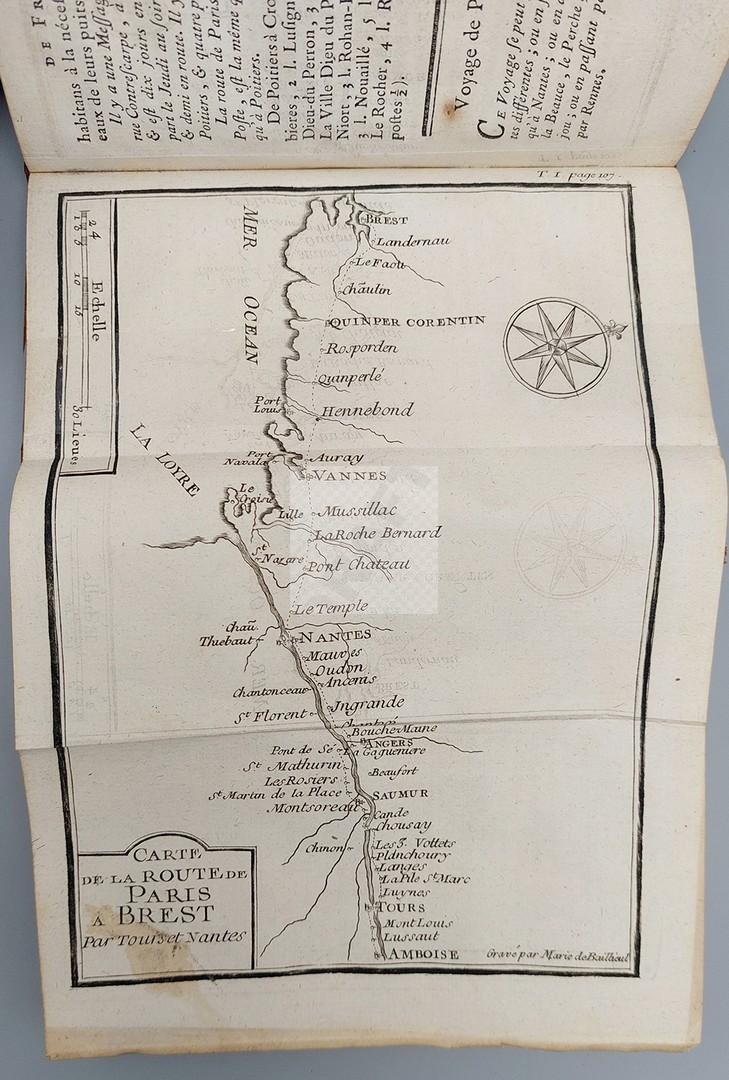 DE FR
habitans à la nécef
eaux de leurs puits
Il y a une Meffag
rue Contrefcarpe, a
& eft dix jours en
part le Jeudi au foir
& demi en route. Il y
Poitiers, & quatre p
La route de Paris
Pofte, eft la même q
qu'à Poitiers.
De Poitiers à Cro
bieres, 2 l. Lufign
Dieu-du Perron, 3
La Ville Dieu du P
Niort, 3 l. Rohan-R
3 l. Nouaillé, 5 l
Le Rocher, 4 l. R
poftes ½).
Voyage de P
CE Voyage fe peut
tes différentes; ou en f
qu'à Nantes; ou en a
la Beauce, le Perche
jou; ou en paffant pa
par Rennes.
T I. page 107.
Echelle
2 4
6 8
10 15
30 Lieues
MER OCEAN
BREST
Landernau
Le Faou
Chaulin
QUINPER CORENTIN
Rosporden
Quinperlé
Port Louis
Hennebond
LA LOYRE
Port Navala
Auray
VANNES
Le Croisic
Lille
Mussillac
La Roche Bernard
St Nazare
Pont Chateau
Le Temple
Chau. Thiebaut
NANTES
Mauves
Oudon
Ancenis
Chantonceau
Ingrande
St Florent
Bouche Maine
ANGERS
Pont de Sé
La Gagueniere
St Mathurin
Beaufort
Les Rosiers
St Martin de la Place
SAUMUR
Montsoreau
Cande
Chousay
Chinon
Les 3. Vollets
Planchoury
Langes
La Pile St Marc
Luynes
TOURS
Mont Louis
Lussaut
AMBOISE
CARTE
DE LA ROUTE DE
PARIS
A BREST
Par Tours et Nantes
Gravé par Marie de Bailleul